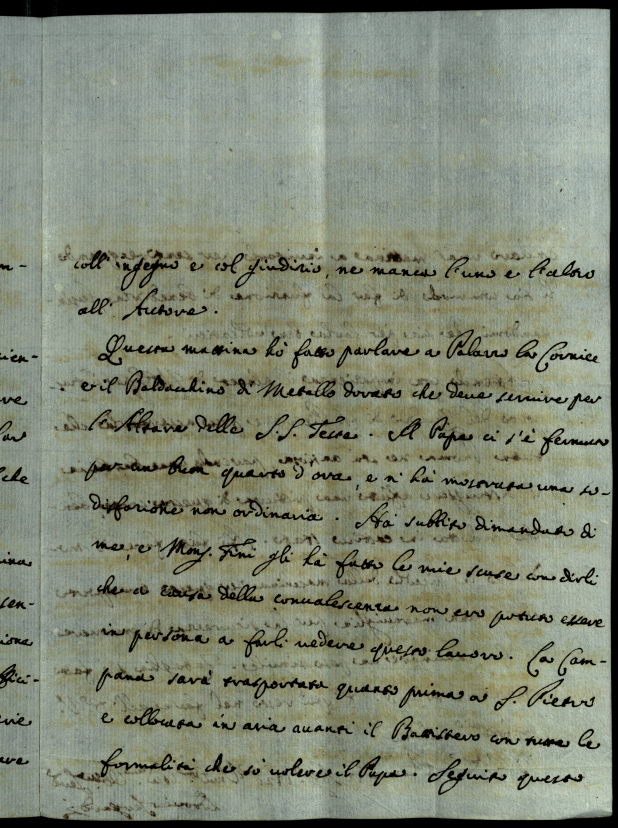 coll'ingegno e col giudizio, ne manca l'uno e l'altro
all'Autore.
Questa mattina hò fatto portare a Palazzo la Cornice
e il Baldacchino di Metallo dorato che deve servire per
l'Altare delle S.S. Teste. Il Papa ci s'è fermato
per un buon quarto d'ora, e n'hà mostrata una so-
disfazione non ordinaria. Hà subbito dimandato di
me, e Mons. Tini gli hà fatto le mie scuse con dirli
che a causa della convalescenza non ero potuto essere
in persona a farli vedere questo lavoro. La Cam-
pana sarà trasportata quanto prima a S. Pietro
e collocata in aria avanti il Battistero con tutte le
formalità che sò volere il Papa. Seguito questo
m-
cien-
ve
lar
che
ina
sen-
zione
ffici-
erie
ave